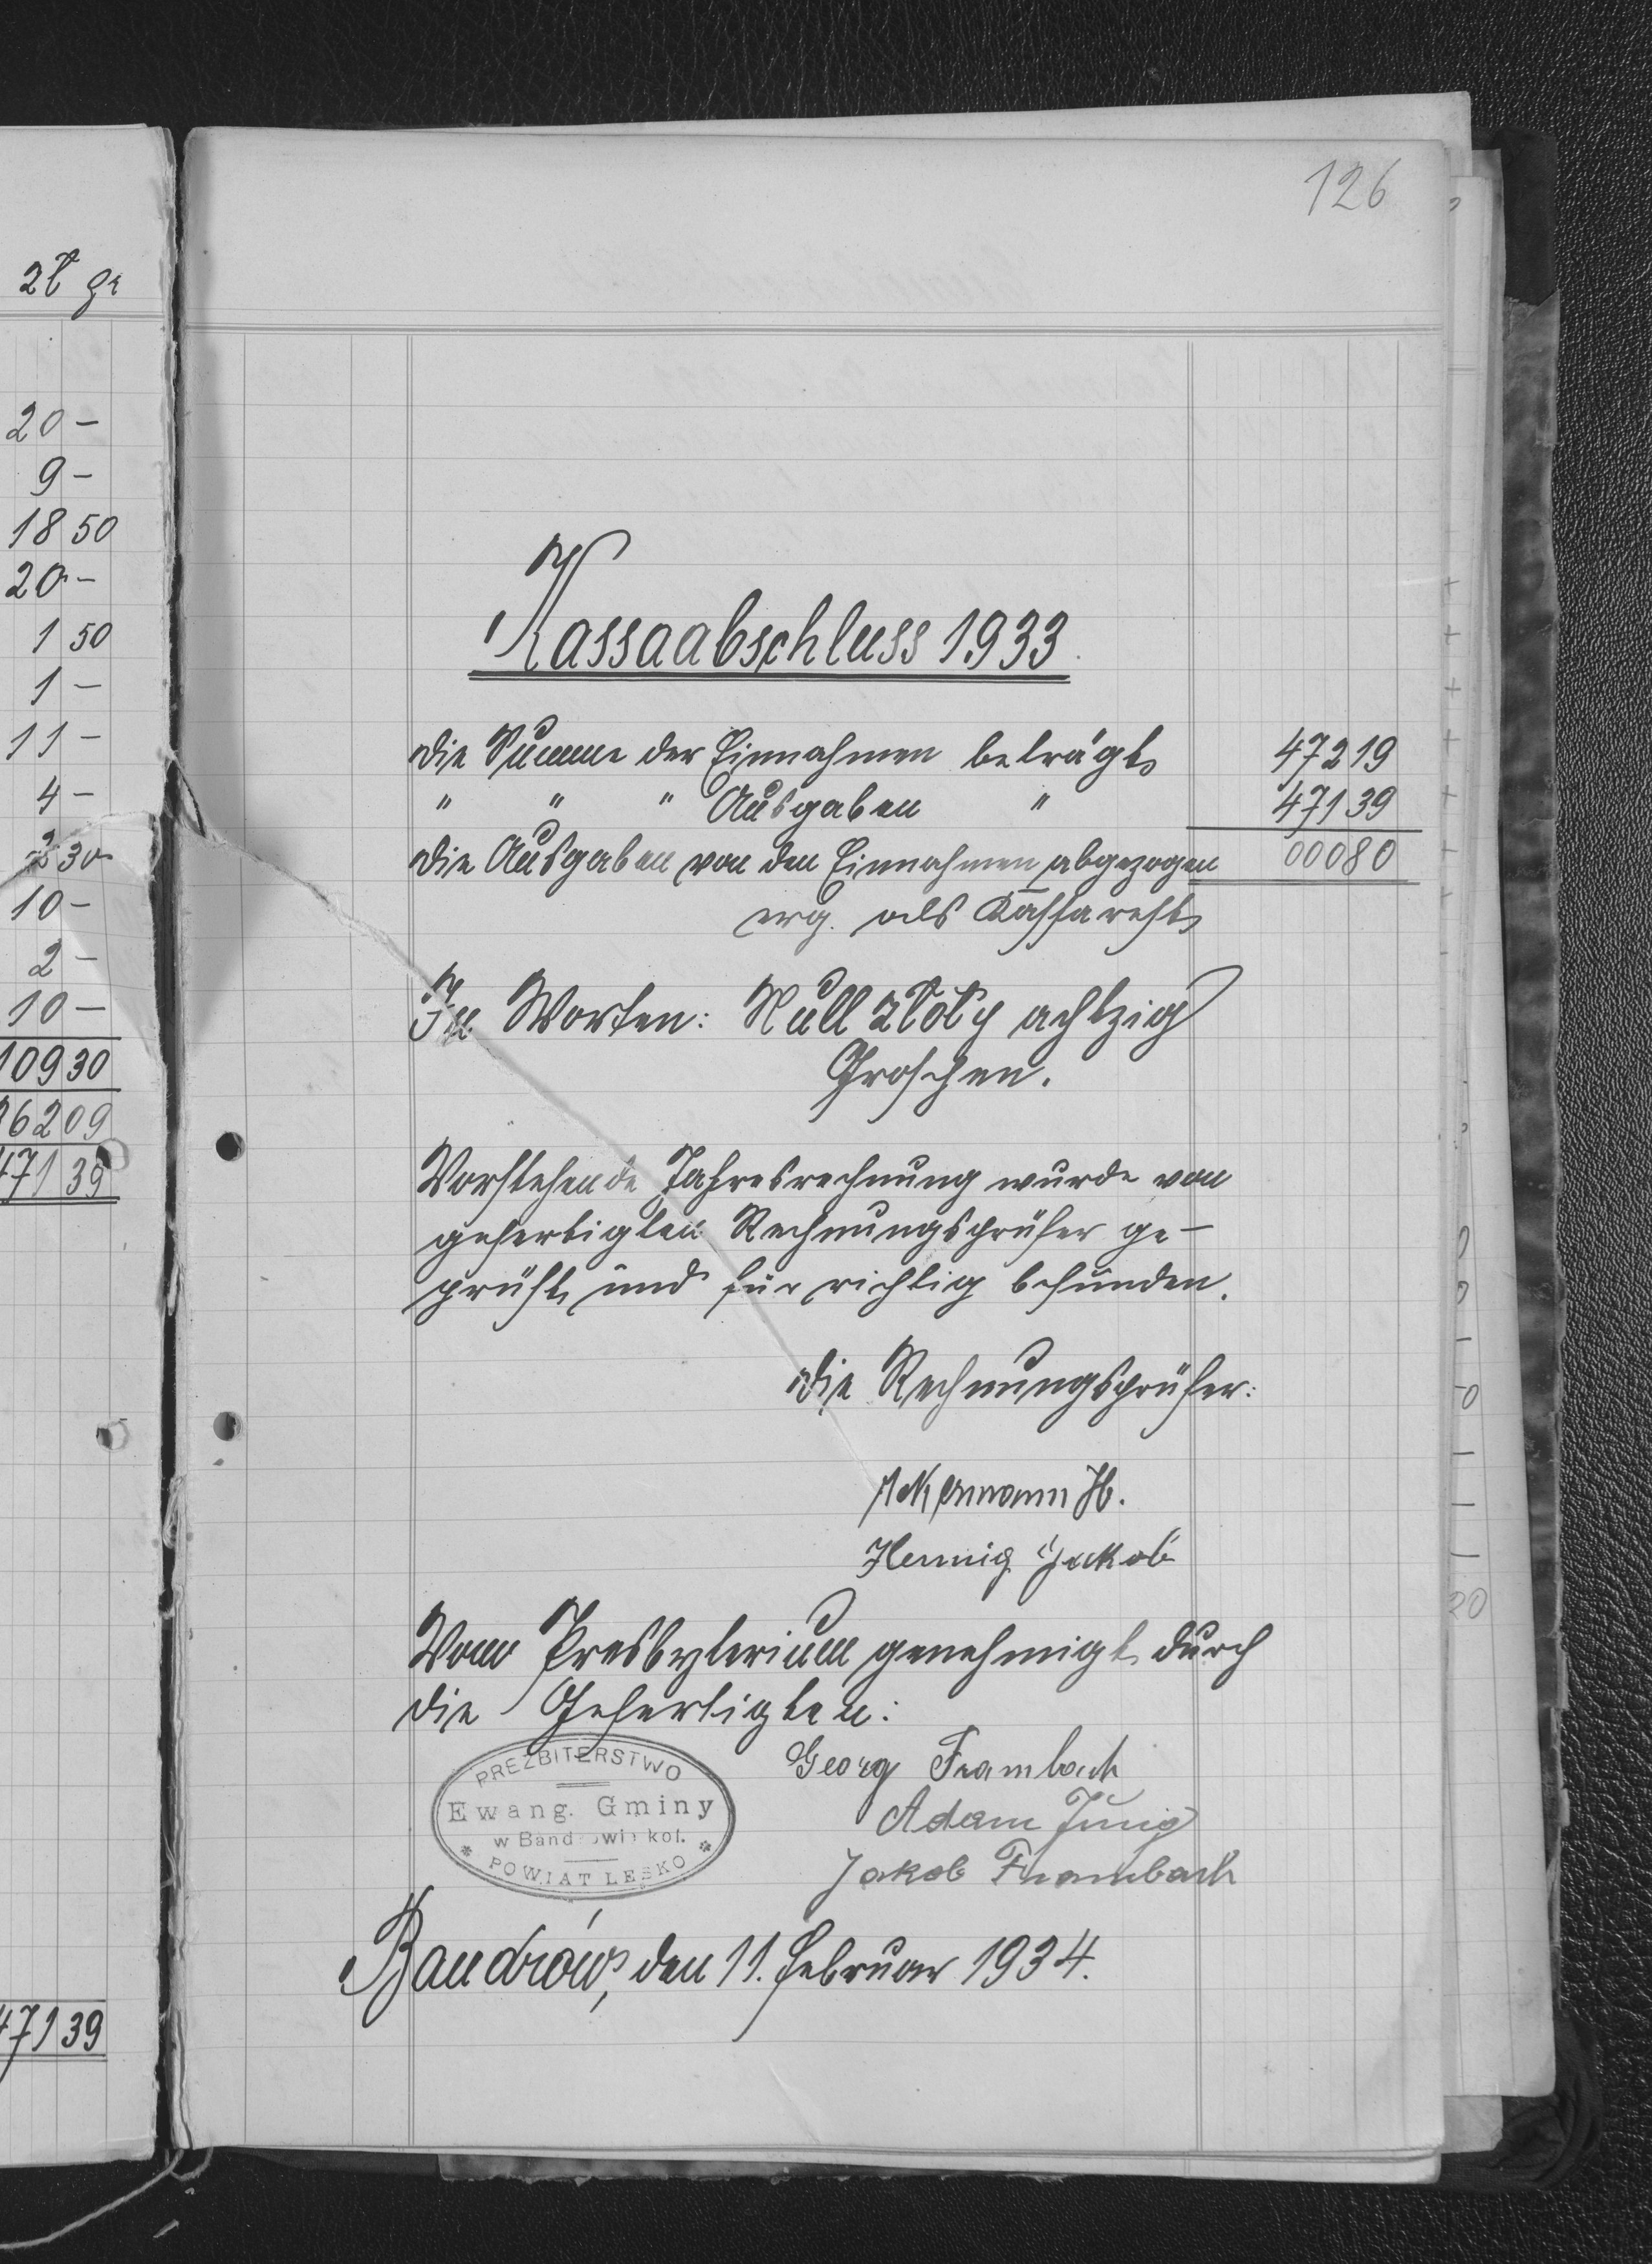 zł gr
20 -
9 -
18 50
20 -
1 50
1 -
11 -
4 -
2 30
10 -
2 -
10 -
109 30
362 09
471 39
471 39
126
Kassaabschluss 1933.
Die Summe der Einnahmen beträgt 472 19
" " " Ausgaben " 471 39
Die Ausgaben von den Einnahmen abgezogen 000 80
erg. als Kassarest
In Worten: Null złoty achtzig
Groschen.
Vorstehende Jahresrechnung wurde von
gefertigten Rechnungsprüfer ge-
prüft und für richtig befunden.
Die Rechnungsprüfer:
Akermann H.
Hennig Jakob
Vom Presbyterium genehmigt durch
die Gefertigten:
Georg Frambach
Adam Jung
Jakob Frambach
PREZBITERSTWO
Ewang. Gminy
w Bandrowie kol.
* POWIAT LESKO *
Bandrów, den 11. Februar 1934.